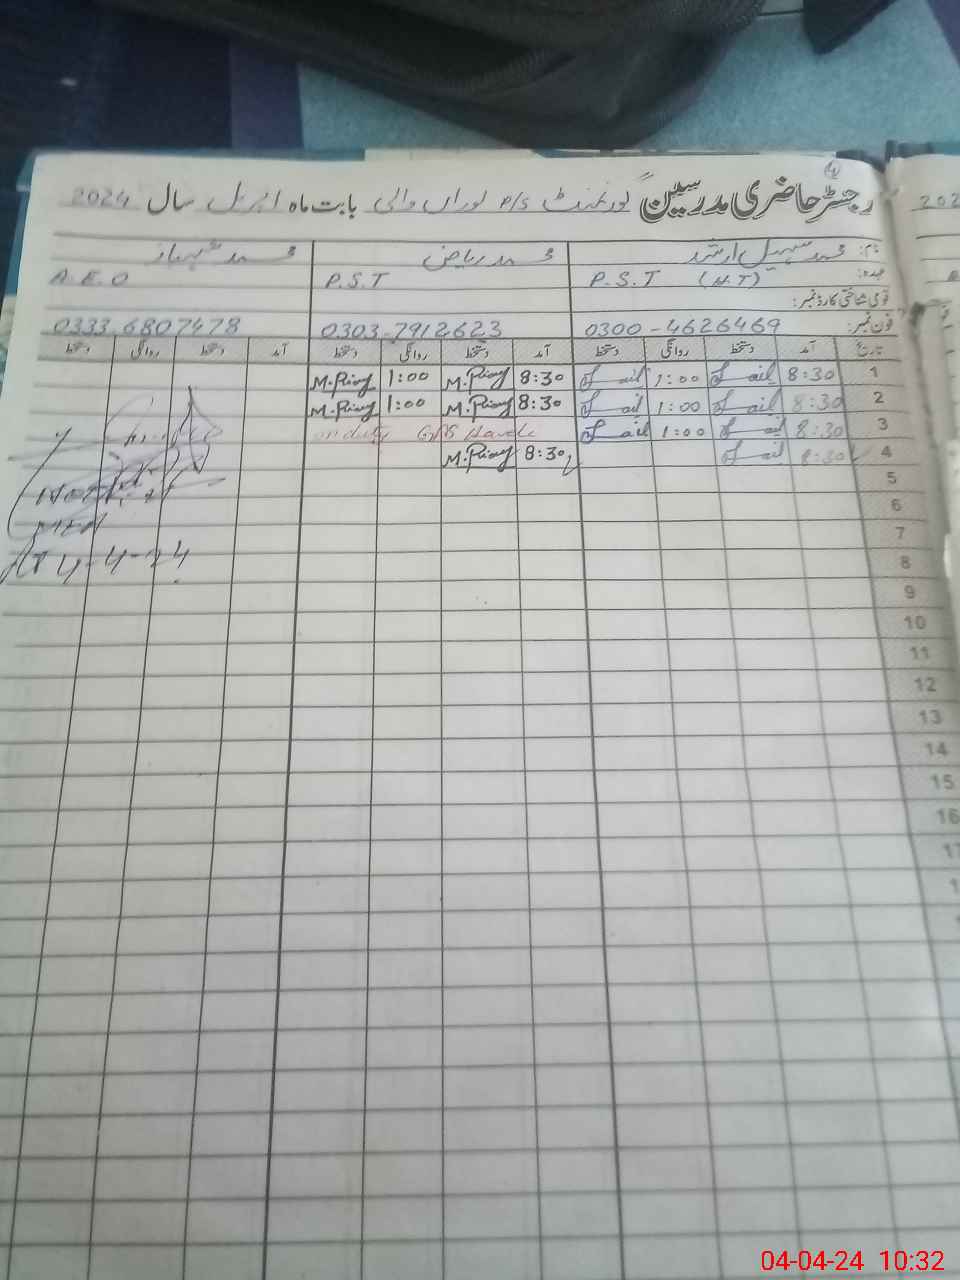 رجسٹر حاضری مدرسین گورنمنٹ P/S نوراں والی بابت ماہ اپریل سال 2024
نام: محمد سہیل ارشد محمد ریاض محمد شہباز
عہدہ: P.S.T (H.T) P.S.T A.E.O
قومی شناختی کارڈ نمبر:
فون نمبر: 0300-4626469 0303-7912623 0333.6807478
تاریخ آمد دستخط روانگی دستخط آمد دستخط روانگی دستخط آمد دستخط روانگی دستخط
1 8:30 1:00 8:30 M.Riaz 1:00 M.Riaz
2 8:30 1:00 8:30 M.Riaz 1:00 M.Riaz
3 8:30 1:00 on duty GPS
4 8:30 8:30 M.Riaz
5
6
7
8
9
10
11
12
13
14
15
16
4-4-24
202
04-04-24 10:32